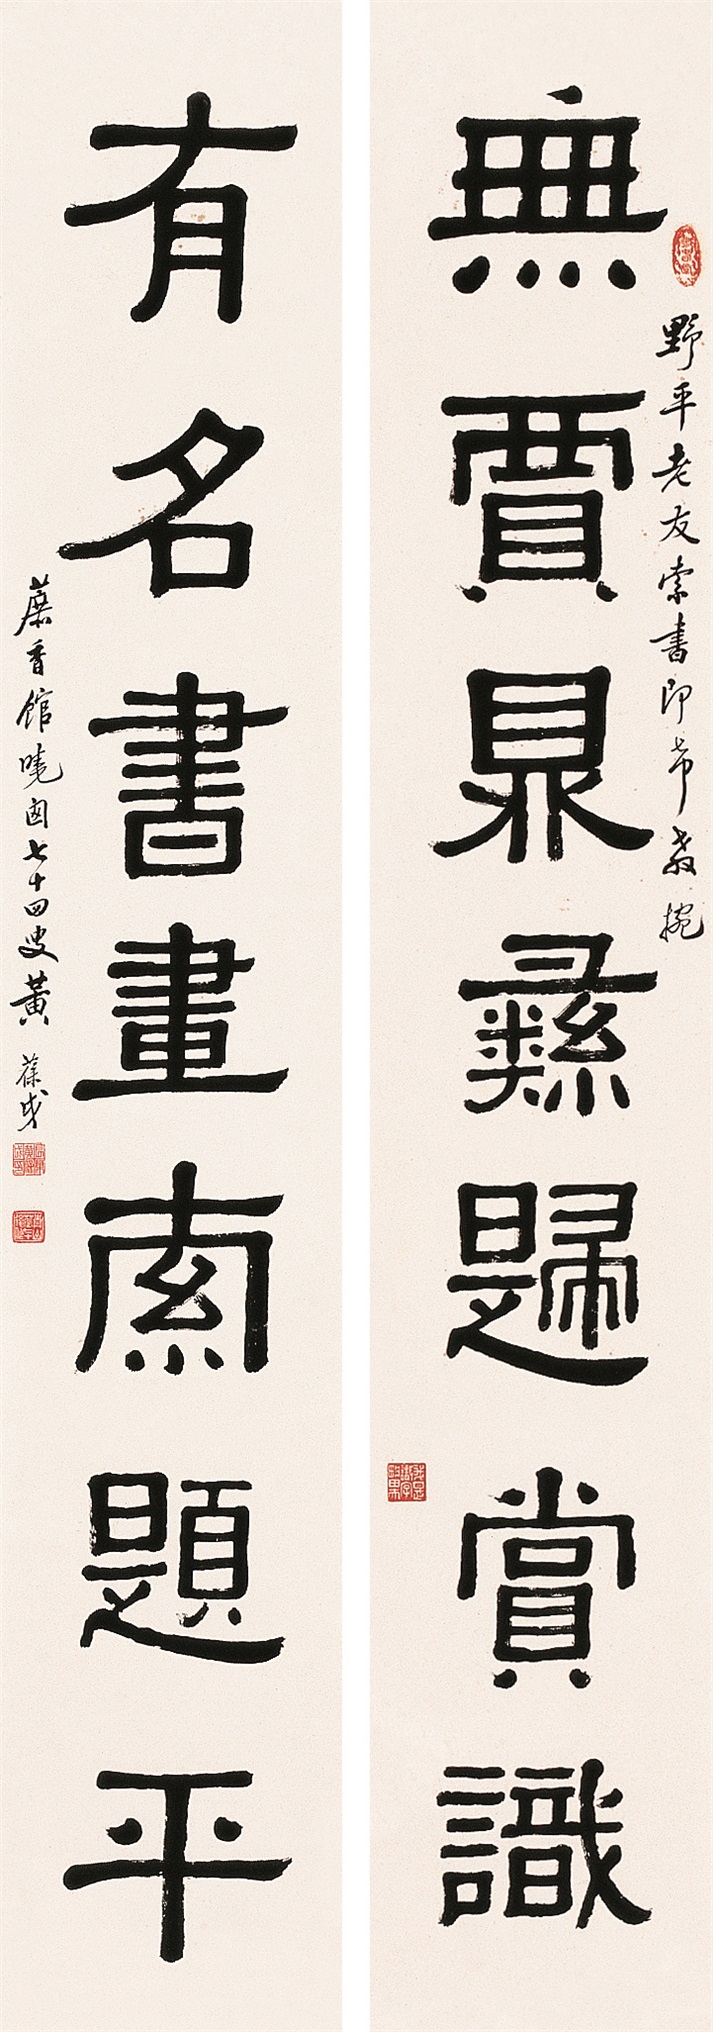 野平老友索書即希教
無賈鼎彝歸賞識
有名書畫索題平
蔗香館曉囱七十四叟黃葆戉